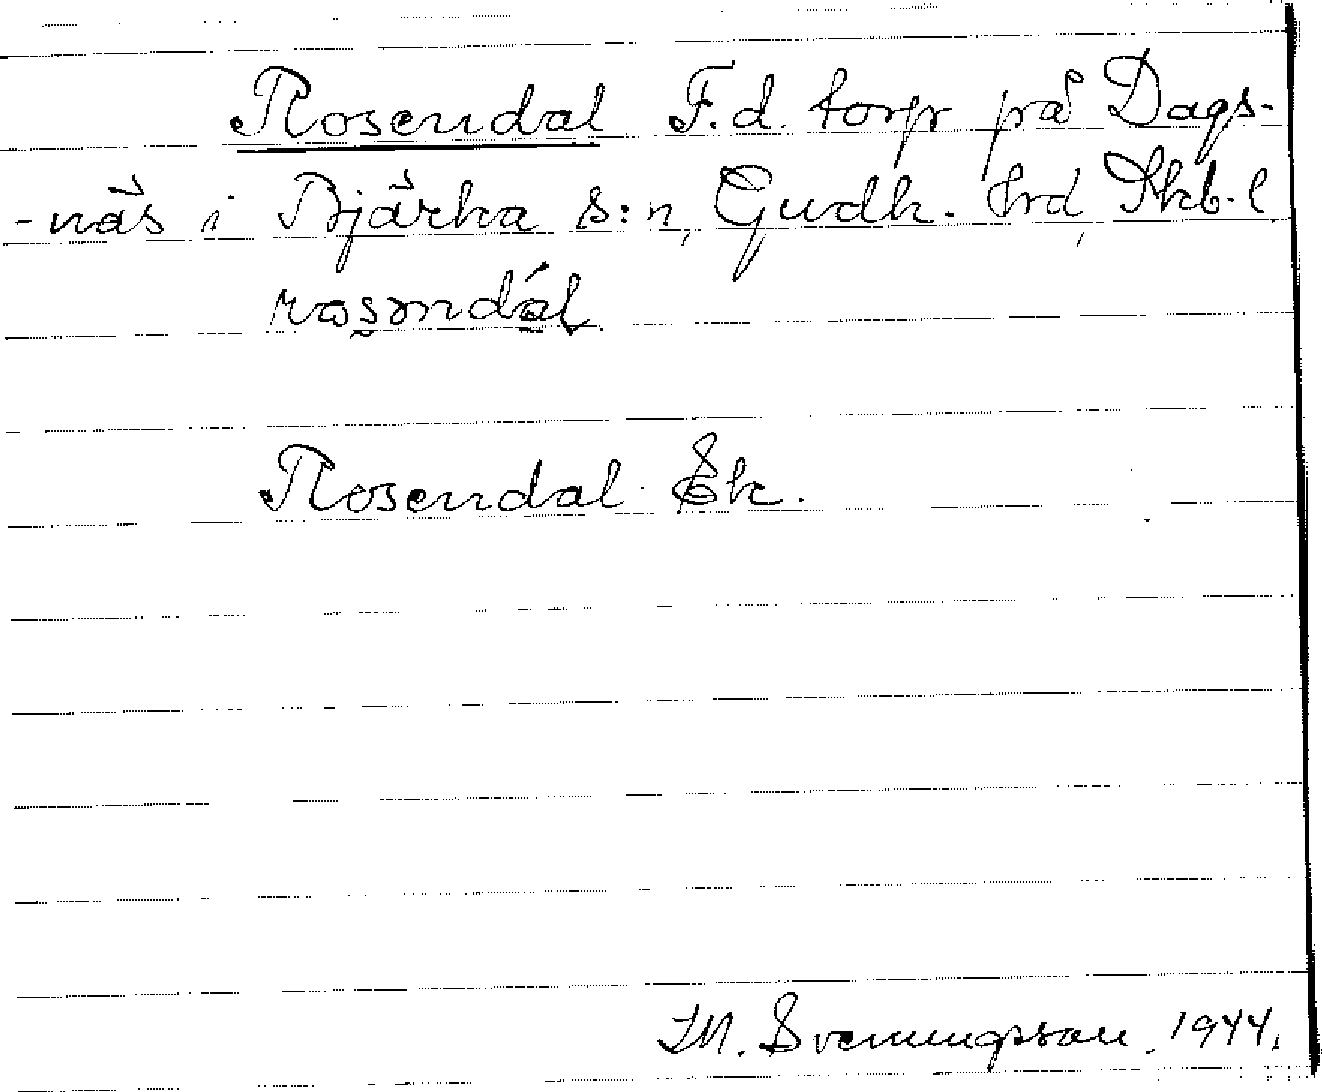 Rosendal F.d. torp på Dags-
-näs i Bjärka s:n, Gudh. hrd, Skb. l.
rosəndál
Rosendal Ek.
I.M. Svenungsson. 1944.